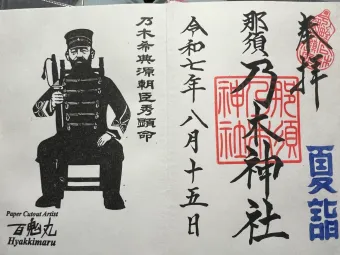 奉拝
那須乃木神社
那須
乃木
神社
夏詣
令和七年八月十五日
乃木希典源朝臣秀顕命
Paper Cutout Artist
百鬼丸
Hyakkimaru